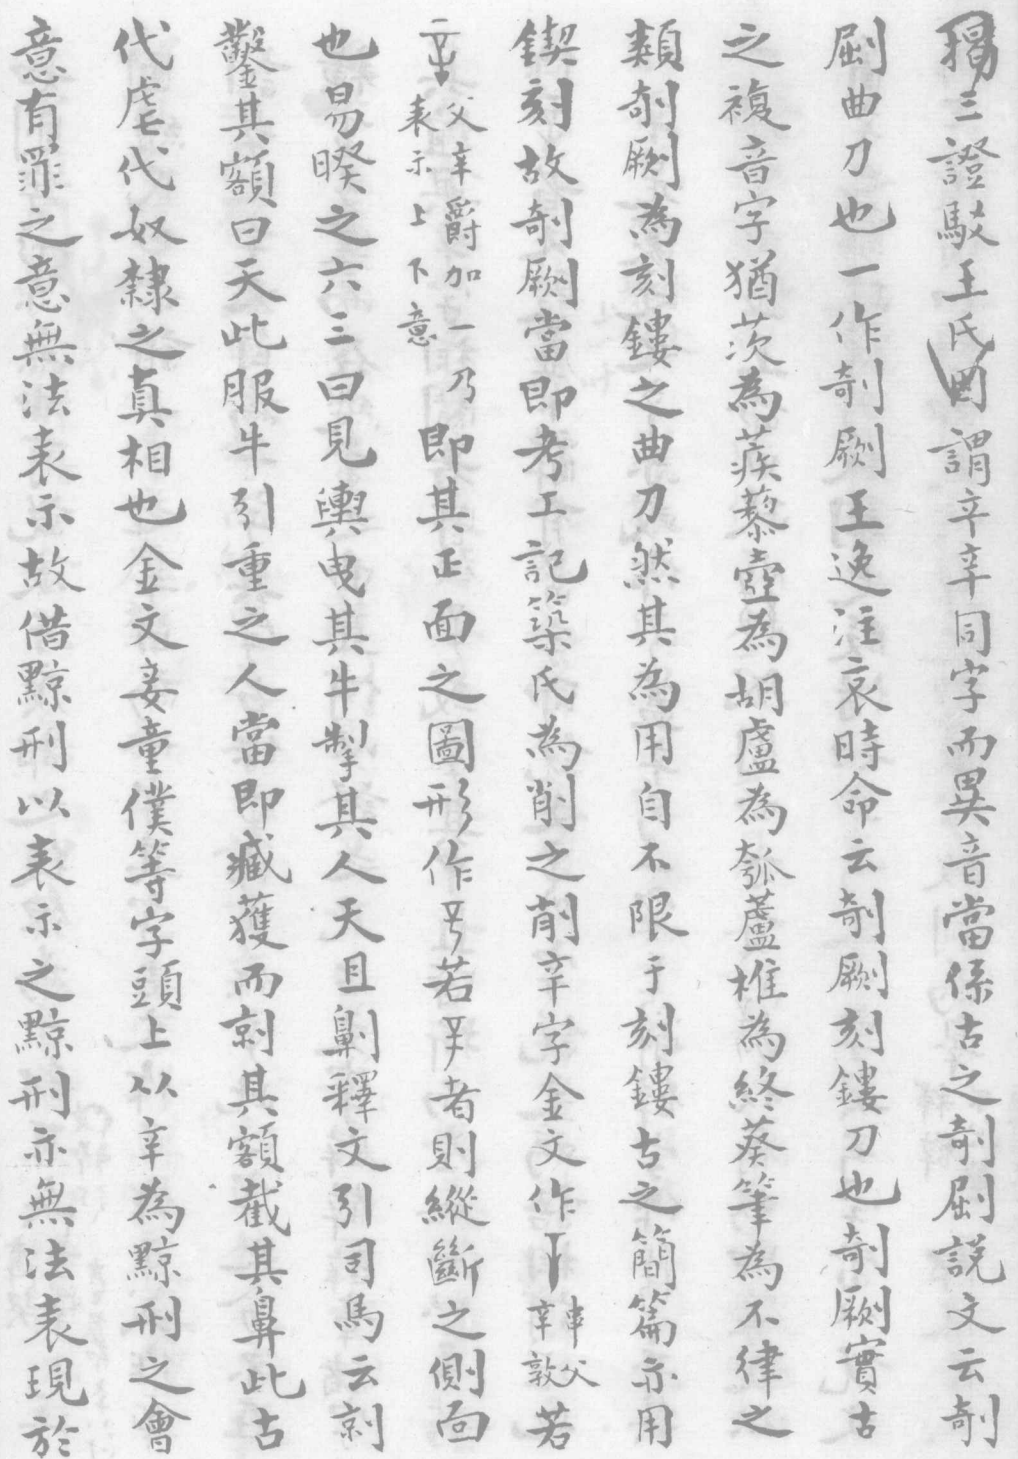 揭三證駁王氏因謂䇂辛同字而異音當係古之剞劂說文云剞
劂曲刀也一作剞𠠺王逸注哀時命云剞𠠺刻鏤刀也剞𠠺實古
之複音字猶茨為蒺藜壺為胡盧為瓠蘆椎為終葵筆為不律之
類剞𠠺為刻鏤之曲刀然其為用自不限于刻鏤古之簡篇亦用
鍥刻故剞𠠺當即考工記築氏為削之削辛字金文作 串父辛敦若
父辛爵加一乃表示上下意即其正面之圖形作 若 者則縱斷之側面
也易睽之六三曰見輿曳其牛掣其人天且劓釋文引司馬云剠
鑿其額曰天此服牛引重之人當即臧獲而剠其額截其鼻此古
代虐代奴隸之真相也金文妾童僕等字頭上从辛為黥刑之會
意有罪之意無法表示故借黥刑以表示之黥刑亦無法表現於